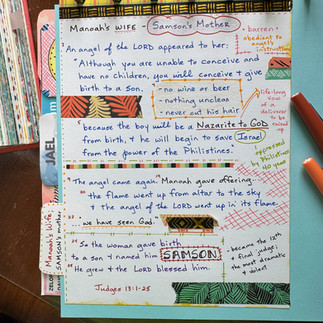 Manoah's WIFE - Samson's Mother
• barren
• obedient to
angel's
instructions
An angel of the LORD appeared to her:
"Although you are unable to conceive and
have no children, you will conceive + give
birth to a son.
- no wine or beer
- nothing unclean
- never cut his hair
life-long vow
of a deliverer
to be raised
up
"because the boy will be a Nazarite to God
from birth, + he will begin to save Israel
from the power of the Philistines."
oppressed
by Philistines
40 years
The angel came again. Manoah gave offering.
the flame went up from altar to the sky
+ the angel of the LORD went up in its flame.
we have seen God
So the woman gave birth
to a son + named him SAMSON
He grew + the LORD blessed him.
• became the 12th
+ final judge;
the most dramatic
+ violent
Judges 13:1-25
JAEL
Manoah's Wife,
SAMSON's mother